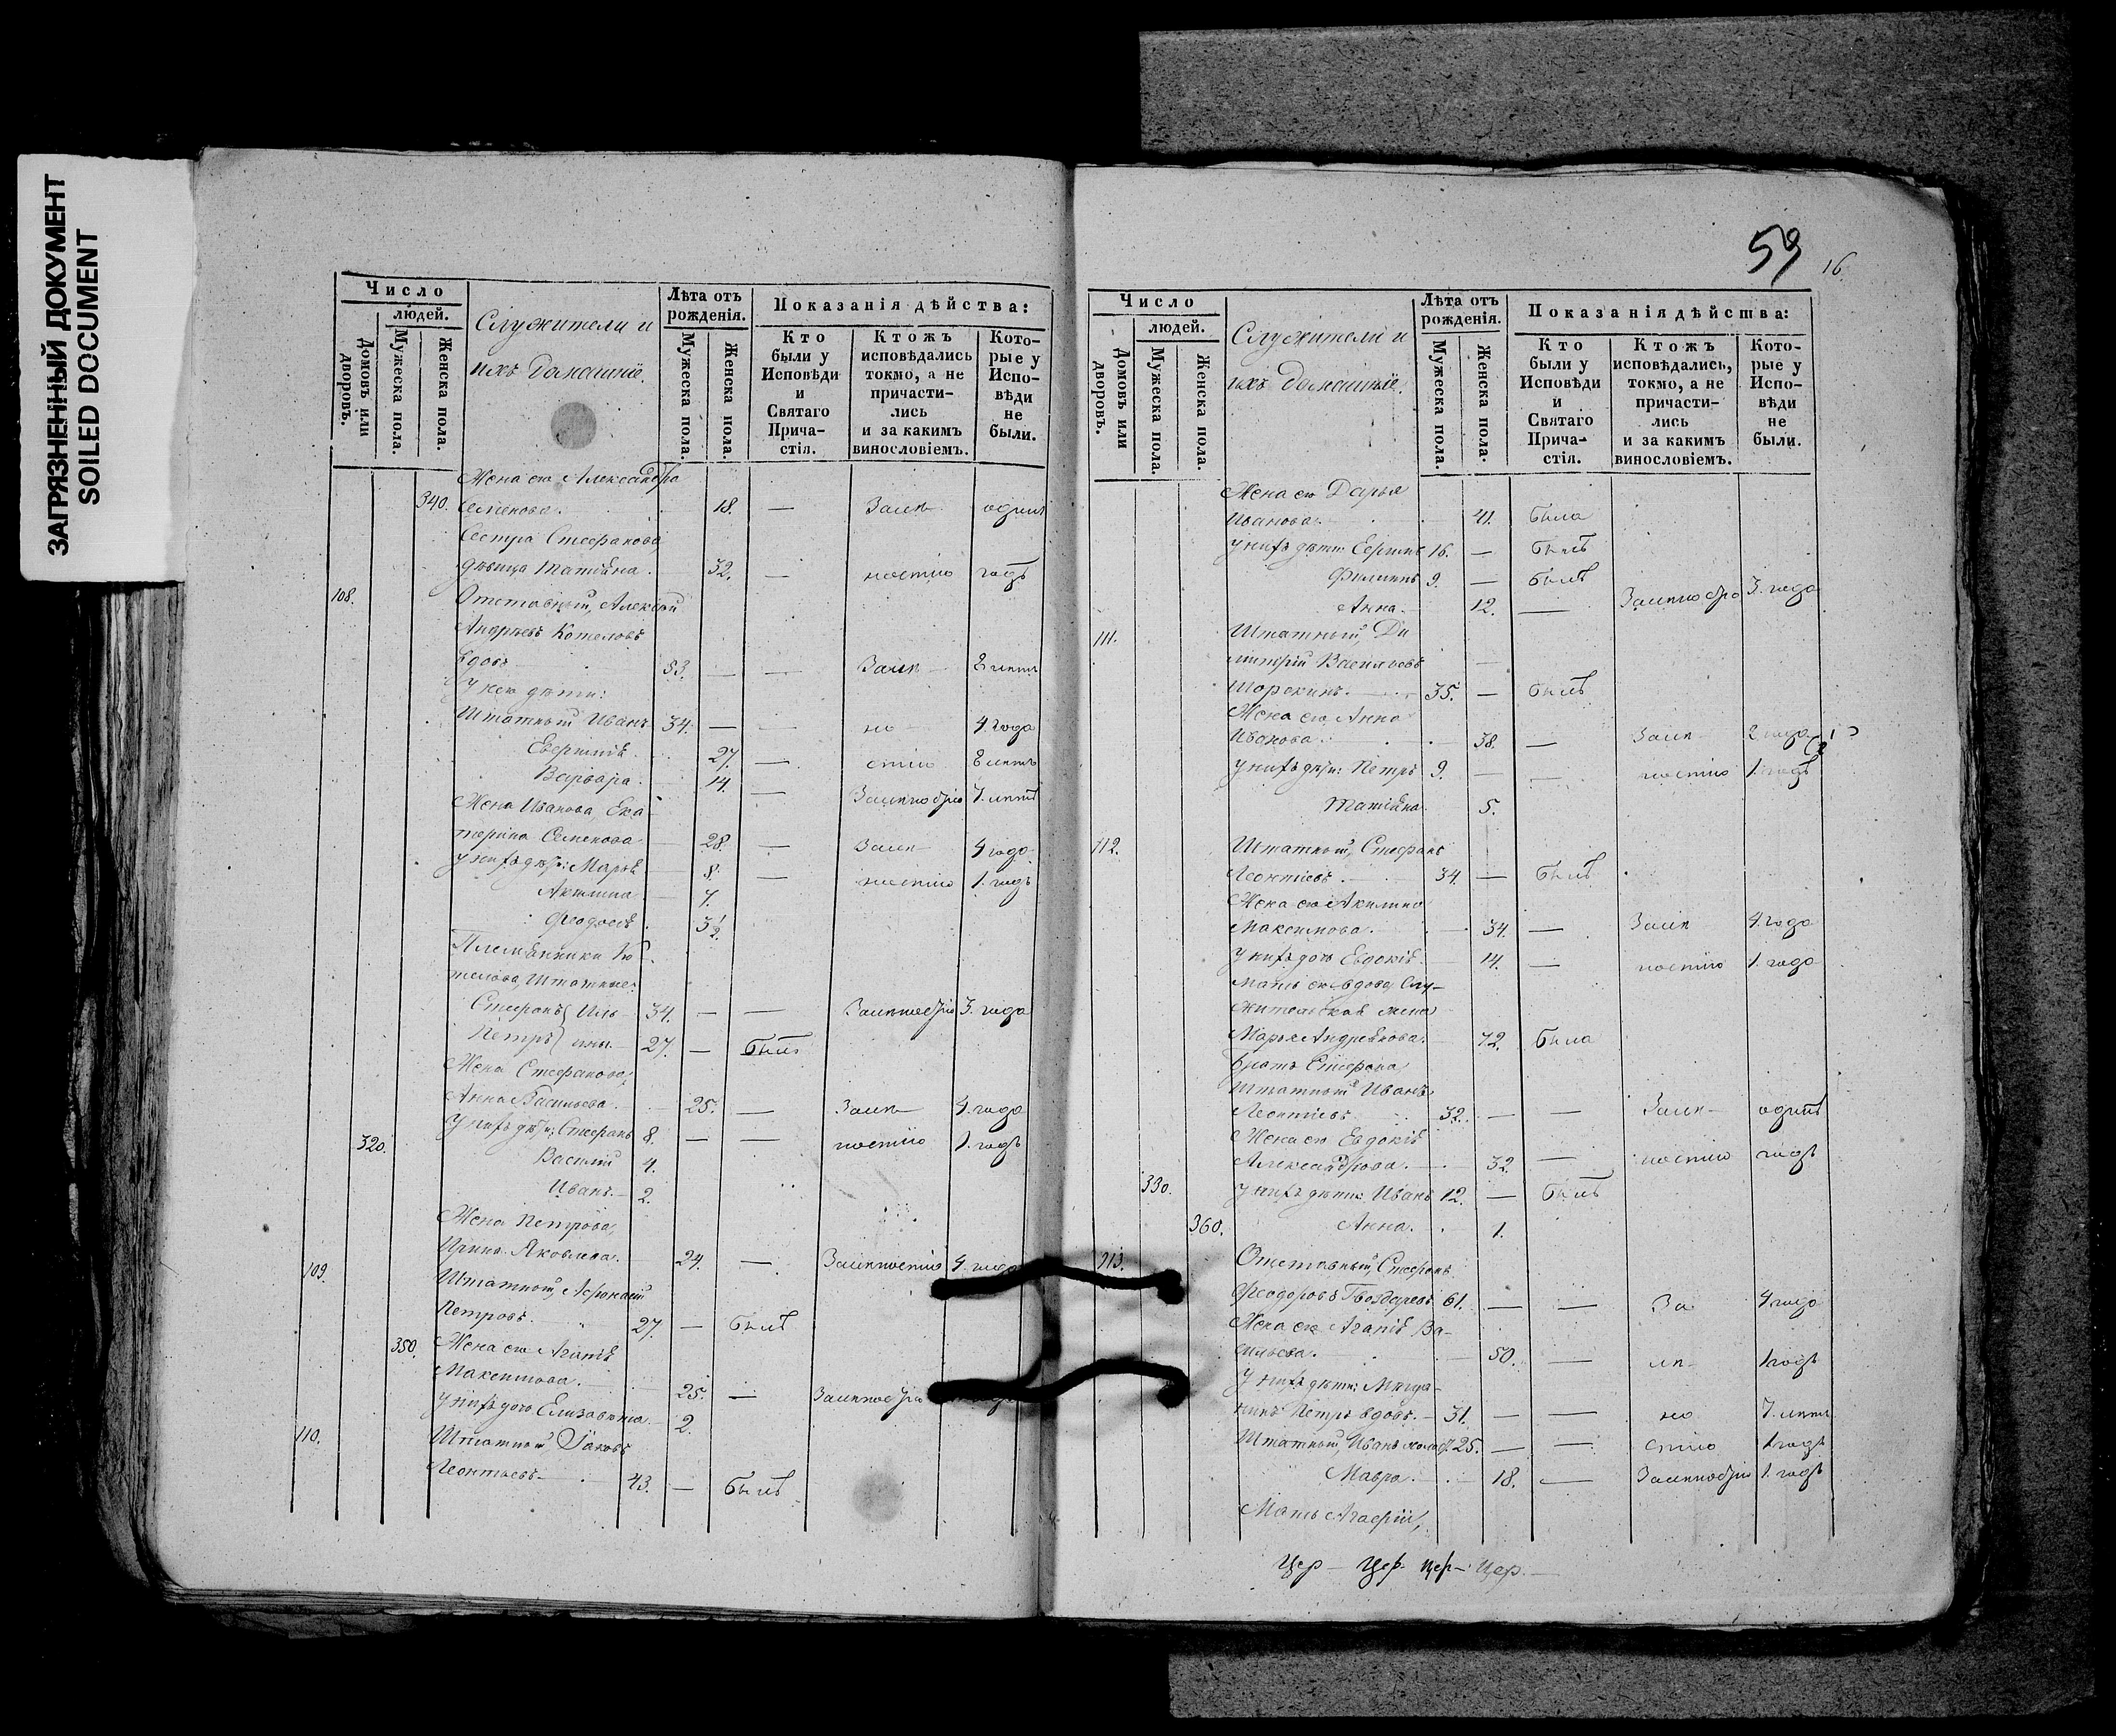 ЗАГРЯЗНЕННЫЙ ДОКУМЕНТ
SOILED DOCUMENT
Число
людей.
Домовъ или дворовъ.
Мужеска пола.
Женска пола.
Служители и
ихъ домашніе.
Лѣта отъ рожденія.
Мужеска пола.
Женска пола.
Показанія дѣйства:
Кто были у Исповѣди и Святаго Прича-стія.
Ктожъ исповѣдались токмо, а не причасти-лись и за какимъ винословіемъ.
Кото-рые у Испо-вѣди не были.
Жена его Александра
340. Семенова. 18. — Залѣ- одинъ
Сестра Стефанова
дѣвица Татіана. 32. — ностію годъ
108. Отставный, Алексѣй
Андреевъ Котеловъ
вдовъ 53. — — Залѣ- 2 лѣтъ
У него дѣти:
Штатный Иванъ 34. — — но 4 года
27. — стію 8 лѣтъ
Варвара. 14. — Залѣностію 7. лѣтъ
Жена Иванова, Ека-
терина Семенова 28. — Залѣ- 4 года
у нихъ дѣти: Марія 8. — ностію 1. годъ
7.
Феодосія 3½.
Племянники Ко-
телова, Штатные:
Стефанъ Иль- 34. — — Залѣностію 3. года
Петръ ины. 27. — былъ
Жена Стефанова,
Анна Васильева. 25. — Залѣ- 4. года
320. У нихъ дѣти: Стефанъ 8. — — ностію 1. годъ
Василій 4.
Иванъ. 2.
Жена Петрова,
Ирина Яковлева. 24. — Залѣностію 4. года
109. Штатный, Афонасій
Петровъ. 27. — былъ
350. Жена его Агапія
Максимова. 25. — Залѣностію
у нихъ дочь Елизавета. 2.
110. Штатный Іаковъ
Леонтьевъ 43. — былъ
59
16
Число
людей.
Домовъ или дворовъ.
Мужеска пола.
Женска пола.
Служители и
ихъ домашніе.
Лѣта отъ рожденія.
Мужеска пола.
Женска пола.
Показанія дѣйства:
Кто были у Исповѣди и Святаго Прича-стія.
Ктожъ исповѣдались, токмо, а не причасти-лись и за какимъ винословіемъ.
Кото-рые у Испо-вѣди не были.
Жена его Дарья
Иванова. 41. была
у нихъ дѣти: Ефимъ 16. — былъ
Филиппъ 9. — былъ
Анна. 12. — Залѣностію 3. года
111. Штатный, Ди-
митрій Васильевъ
Шорохинъ. 35. — былъ
Жена его Анна
Иванова. 38. — Залѣ- 2 года
у нихъ дѣти: Петръ 9. — — ностію 1. годъ
Татіана 5.
112. Штатный, Стефанъ
Леонтіевъ. 34. — былъ
Жена его Акилина
Максимова. 34. — Залѣ- 4. года
у нихъ дочь Евдокія 14. — ностію 1. года
мать его вдова, Слу-
жительская жена
Марья Андреянова. 72. была
братъ Стефана,
Штатный Иванъ
Леонтіевъ 32. — — Залѣ- одинъ
Жена его Евдокія
Александрова. 32 — ностію годъ
330. у нихъ дѣти: Иванъ 12. — былъ
360. Анна. 1.
113. Отставный, Стефанъ
Феодоровъ Гвоздаревъ 61. — — За 4 года
Жена его Агапія Ва-
сильева. 50. — лѣ- 1 годъ
У нихъ дѣти: Мѣща-
нинъ Петръ вдовъ. 31. — — но 7. лѣтъ
Штатный, Иванъ холостъ 25. — — стію 1 годъ
Мавра. 18. — Залѣностію 1. годъ
Мать Агафіи,
Цер — Цер. Цер — Цер. —